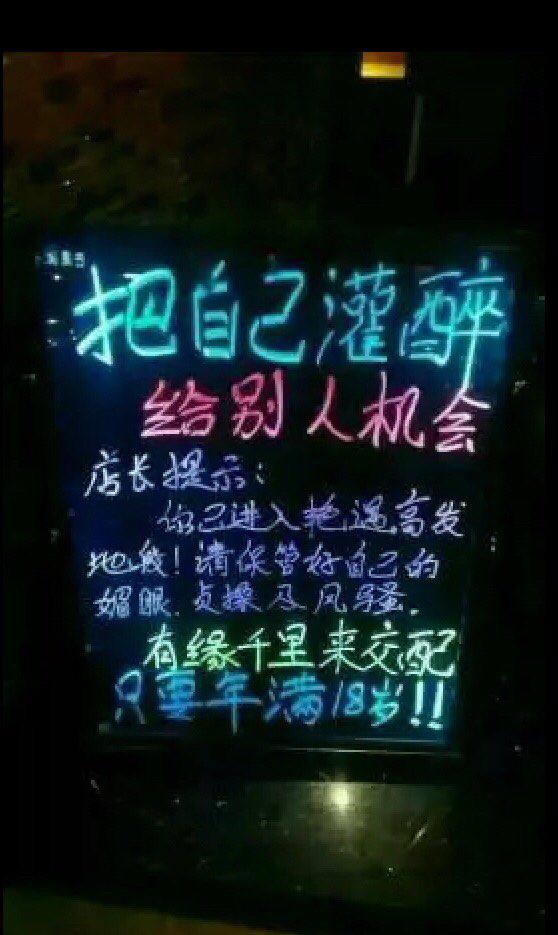 把自己灌醉
给别人机会
店长提示:
你已进入艳遇高发
地段!请保管好自己的
媚眼.贞操及风骚.
有缘千里来交配
只要年满18岁!!